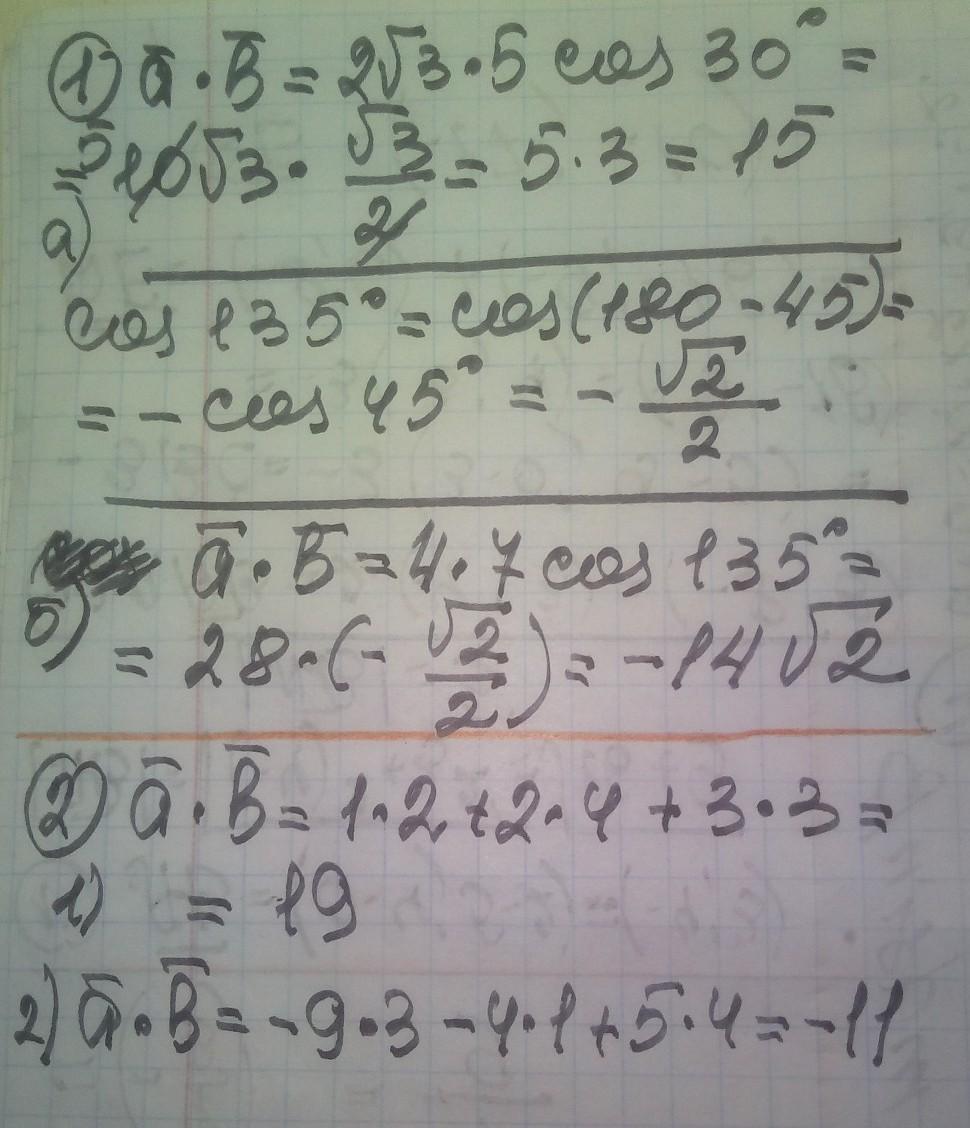 ① a̅ · b̅ = 2√3 · 5 cos 30° =
= 5 10√3 · √3/2 = 5 · 3 = 15
а)
cos 135° = cos(180 - 45) =
= - cos 45° = - √2/2
a̅ · b̅ = 4 · 7 cos 135° =
б) = 28 · (- √2/2) = -14√2
② a̅ · b̅ = 1 · 2 + 2 · 4 + 3 · 3 =
1) = 19
2) a̅ · b̅ = -9 · 3 - 4 · 1 + 5 · 4 = -11